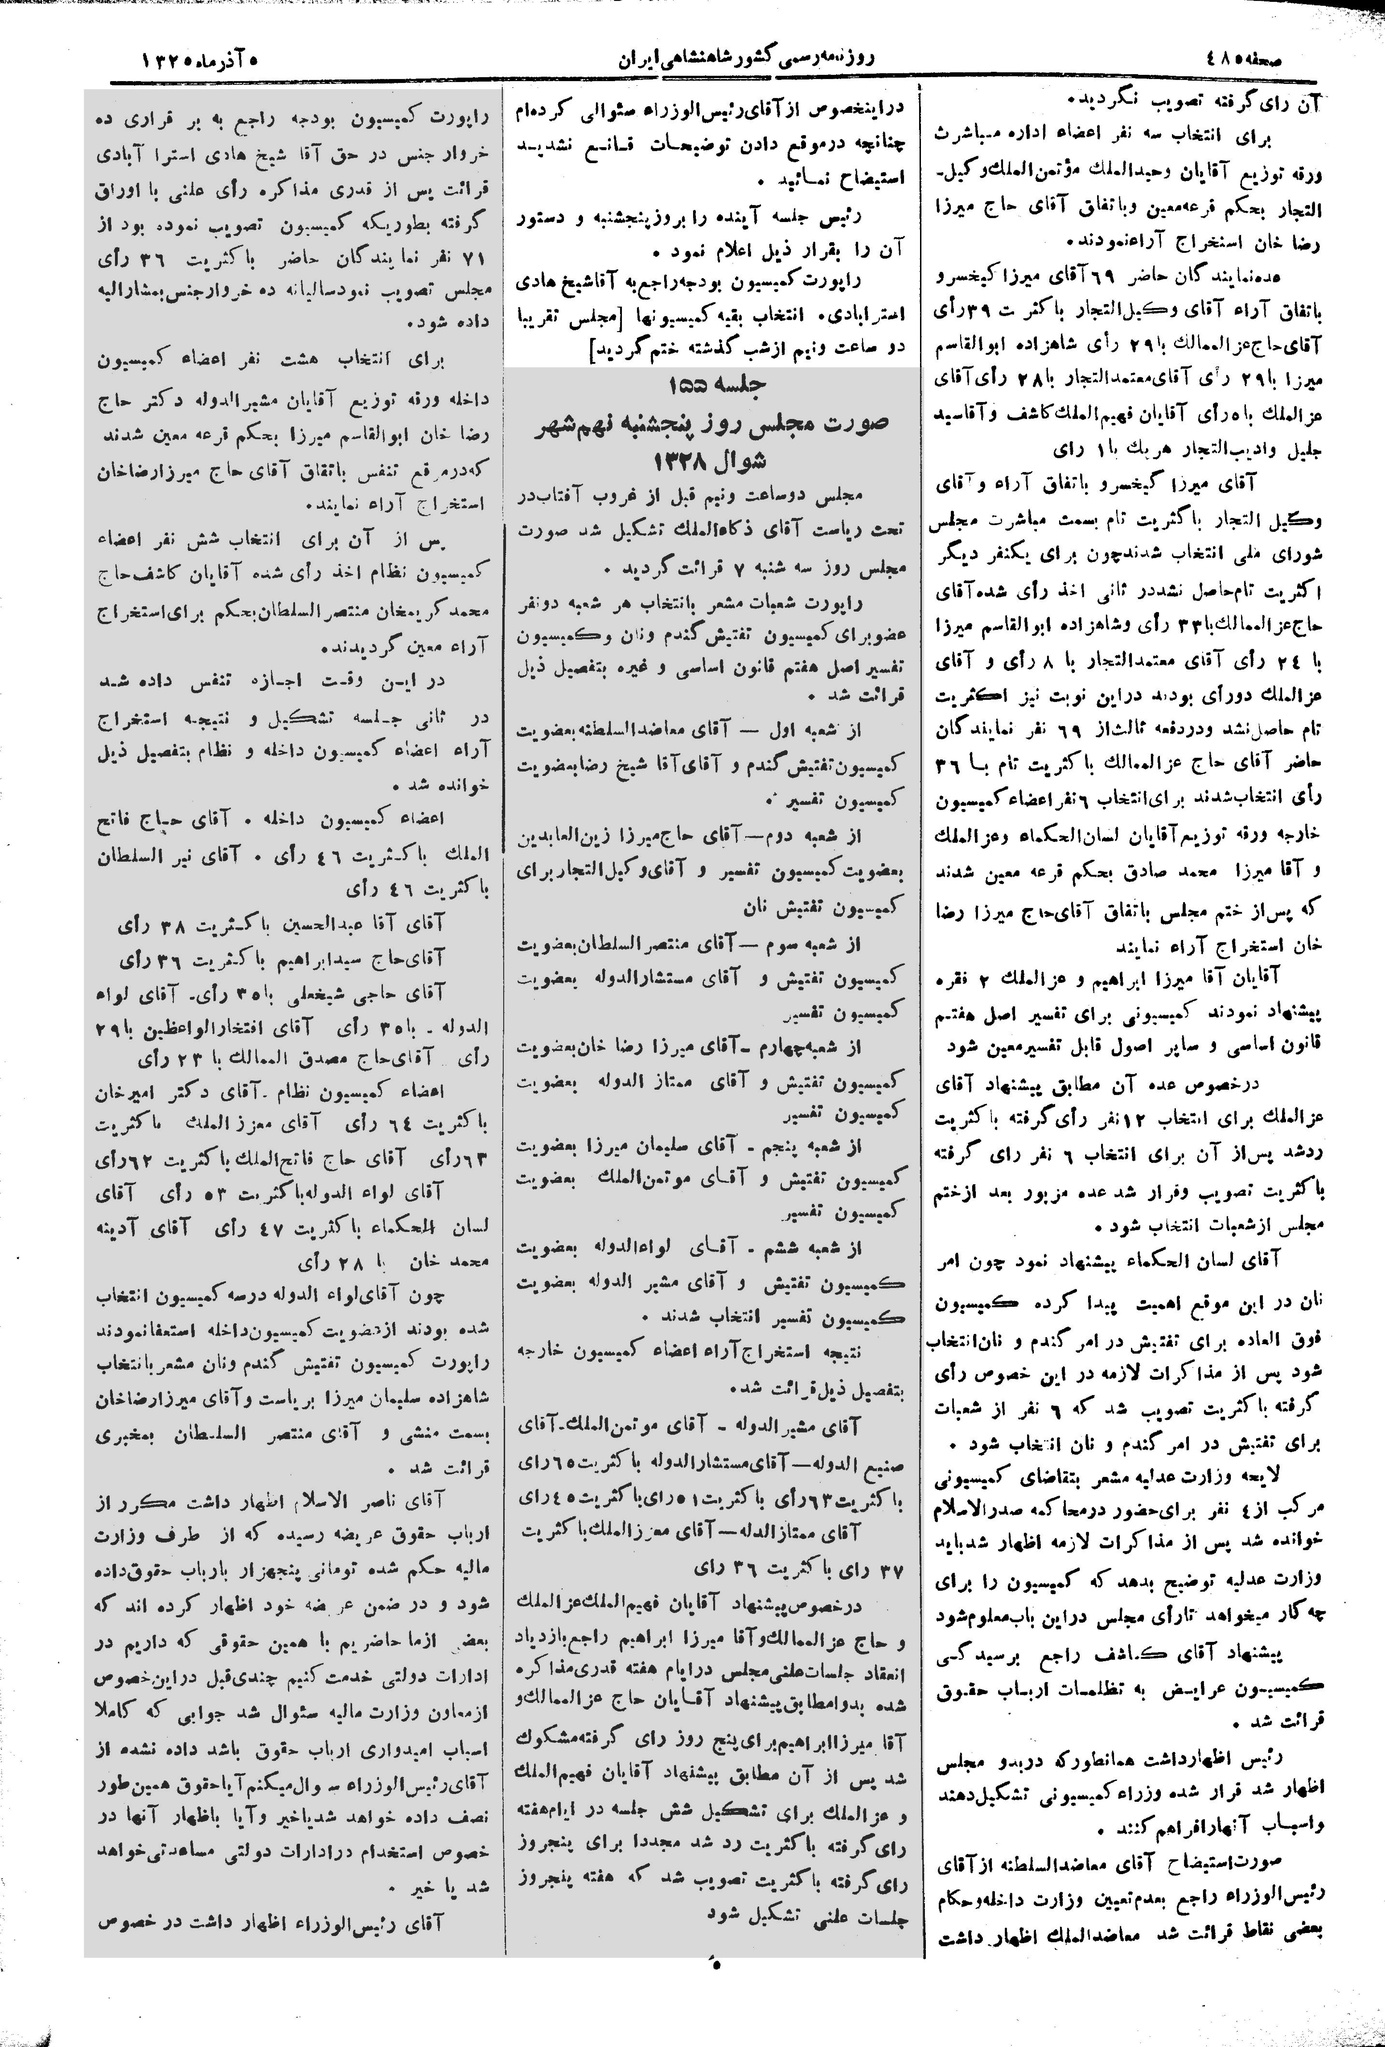 صفحه ٤٨٥
روزنامه رسمی کشور شاهنشاهی ایران
٥ آذر ماه ۱۳۲۵
آن رای گرفته تصویب نگردید.
برای انتخاب سه نفر اعضاء اداره مباشرت
ورقه توزیع آقایان وحیدالملك مؤتمن الملك وکیل-
التجار بحکم قرعه معین وباتفاق آقای حاج میرزا
رضا خان استخراج آراء نمودند.
عده نمایندگان حاضر ٦٩ آقای میرزا کیخسرو
باتفاق آراء آقای وکیل التجار باکثریت ۳۹ رأی
آقای حاج عزالممالك با ۲۹ رأی شاهزاده ابوالقاسم
میرزا با ۲۹ رأی آقای معتمدالتجار با ۲۸ رأی آقای
عزالملك با ٥ رأی آقایان فهیم الملك کاشف و آقاسید
جلیل وادیب التجار هریك با ۱ رای
آقای میرزا کیخسرو باتفاق آراء و آقای
وکیل التجار باکثریت تام بسمت مباشرت مجلس
شورای ملی انتخاب شدند چون برای یکنفر دیگر
اکثریت تام حاصل نشد در ثانی اخذ رأی شده آقای
حاج عزالممالك با ۳۳ رأی وشاهزاده ابوالقاسم میرزا
با ٢٤ رأی آقای معتمدالتجار با ۸ رأی و آقای
عزالملك دورأی بودند دراین نوبت نیز اکثریت
تام حاصل نشد ودردفعه ثالث از ٦٩ نفر نمایندگان
حاضر آقای حاج عزالممالك باکثریت تام با ۳٦
رأی انتخاب شدند برای انتخاب ٦ نفر اعضاء کمیسیون
خارجه ورقه توزیع آقایان لسان الحکماء وعزالملك
و آقا میرزا محمد صادق بحکم قرعه معین شدند
که پس از ختم مجلس باتفاق آقای حاج میرزا رضا
خان استخراج آراء نمایند
آقایان آقا میرزا ابراهیم و عزالملك ۲ فقره
پیشنهاد نمودند کمیسیونی برای تفسیر اصل هفتم
قانون اساسی و سایر اصول قابل تفسیر معین شود
درخصوص عده آن مطابق پیشنهاد آقای
عزالملك برای انتخاب ۱۲ نفر رأی گرفته باکثریت
ردشد پس از آن برای انتخاب ٦ نفر رای گرفته
باکثریت تصویب وقرار شد عده مزبور بعد ازختم
مجلس ازشعبات انتخاب شود.
آقای لسان الحکماء پیشنهاد نمود چون امر
نان در این موقع اهمیت پیدا کرده کمیسیون
فوق العاده برای تفتیش در امر گندم و نان انتخاب
شود پس از مذاکرات لازمه در این خصوص رأی
گرفته باکثریت تصویب شد که ٦ نفر از شعبات
برای تفتیش در امر گندم و نان انتخاب شود.
لایحه وزارت عدلیه مشعر بتقاضای کمیسیونی
مرکب از ٤ نفر برای حضور درمحاکمه صدرالاسلام
خوانده شد پس از مذاکرات لازمه اظهار شد باید
وزارت عدلیه توضیح بدهد که کمیسیون را برای
چه کار میخواهد تارأی مجلس دراین باب معلوم شود
پیشنهاد آقای کاشف راجع برسیدگی
کمیسیون عرایض به تظلمات ارباب حقوق
قرائت شد.
رئیس اظهارداشت همانطور که دربدو مجلس
اظهار شد قرار شده وزراء کمیسیونی تشکیل دهند
واسباب آنهارا فراهم کنند.
صورت استیضاح آقای معاضدالسلطنه از آقای
رئیس الوزراء راجع بعدم تعیین وزارت داخله وحکام
بعضی نقاط قرائت شد معاضدالملك اظهار داشت
دراینخصوص از آقای رئیس الوزراء سئوالی کرده ام
چنانچه درموقع دادن توضیحات قانع نشدید
استیضاح نمائید.
رئیس جلسه آینده را بروز پنجشنبه و دستور
آن را بقرار ذیل اعلام نمود.
راپورت کمیسیون بودجه راجع به آقا شیخ هادی
استرابادی. انتخاب بقیه کمیسیونها [مجلس تقریبا
دو ساعت ونیم ازشب گذشته ختم گردید]
جلسه ۱٥٥
صورت مجلس روز پنجشنبه نهم شهر
شوال ۱۳۲۸
مجلس دوساعت ونیم قبل از غروب آفتاب در
تحت ریاست آقای ذکاءالملك تشکیل شد صورت
مجلس روز سه شنبه ۷ قرائت گردید.
راپورت شعبات مشعر بانتخاب هر شعبه دونفر
عضو برای کمیسیون تفتیش گندم ونان وکمیسیون
تفسیر اصل هفتم قانون اساسی و غیره بتفصیل ذیل
قرائت شد.
از شعبه اول — آقای معاضدالسلطنه بعضویت
کمیسیون تفتیش گندم و آقای آقا شیخ رضا بعضویت
کمیسیون تفسیر.
از شعبه دوم — آقای حاج میرزا زین العابدین
بعضویت کمیسیون تفسیر و آقای وکیل التجار برای
کمیسیون تفتیش نان
از شعبه سوم — آقای منتصر السلطان بعضویت
کمیسیون تفتیش و آقای مستشارالدوله بعضویت
کمیسیون تفسیر
از شعبه چهارم - آقای میرزا رضا خان بعضویت
کمیسیون تفتیش و آقای ممتاز الدوله بعضویت
کمیسیون تفسیر
از شعبه پنجم - آقای سلیمان میرزا بعضویت
کمیسیون تفتیش و آقای موتمن الملك بعضویت
کمیسیون تفسیر
از شعبه ششم - آقای لواءالدوله بعضویت
کمیسیون تفتیش و آقای مشیر الدوله بعضویت
کمیسیون تفسیر انتخاب شدند.
نتیجه استخراج آراء اعضاء کمیسیون خارجه
بتفصیل ذیل قرائت شد.
آقای مشیر الدوله - آقای موتمن الملك - آقای
صنیع الدوله — آقای مستشارالدوله باکثریت ٦٥ رای
باکثریت ٦۳ رأی باکثریت ٥۱ رای باکثریت ٤٥ رای
آقای ممتاز الدله — آقای معزز الملك باکثریت
۳۷ رای باکثریت ۳٦ رای
درخصوص پیشنهاد آقایان فهیم الملك عزالملك
و حاج عزالممالك و آقا میرزا ابراهیم راجع بازدیاد
انعقاد جلسات علنی مجلس درایام هفته قدری مذاکره
شده بدوا مطابق پیشنهاد آقایان حاج عزالممالك و
آقا میرزا ابراهیم برای پنج روز رای گرفته مشکوك
شد پس از آن مطابق پیشنهاد آقایان فهیم الملك
و عزالملك برای تشکیل شش جلسه در ایام هفته
رای گرفته باکثریت رد شد مجددا برای پنجروز
رای گرفته باکثریت تصویب شد که هفته پنجروز
جلسات علنی تشکیل شود
راپورت کمیسیون بودجه راجع به بر قراری ده
خروار جنس در حق آقا شیخ هادی استرا آبادی
قرائت پس از قدری مذاکره رأی علنی با اوراق
گرفته بطوریکه کمیسیون تصویب نموده بود از
۷۱ نفر نمایندگان حاضر باکثریت ۳٦ رأی
مجلس تصویب نمود سالیانه ده خروار جنس بمشارالیه
داده شود.
برای انتخاب هشت نفر اعضاء کمیسیون
داخله ورقه توزیع آقایان مشیر الدوله دکتر حاج
رضا خان ابوالقاسم میرزا بحکم قرعه معین شدند
که درموقع تنفس باتفاق آقای حاج میرزا رضاخان
استخراج آراء نمایند.
پس از آن برای انتخاب شش نفر اعضاء
کمیسیون نظام اخذ رأی شده آقایان کاشف حاج
محمد کریمخان منتصر السلطان بحکم برای استخراج
آراء معین گردیدند.
در این وقت اجازه تنفس داده شد
در ثانی جلسه تشکیل و نتیجه استخراج
آراء اعضاء کمیسیون داخله و نظام بتفصیل ذیل
خوانده شد.
اعضاء کمیسیون داخله. آقای حاج فاتح
الملك باکثریت ٤٦ رأی. آقای نیر السلطان
باکثریت ٤٦ رأی
آقای آقا عبدالحسین باکثریت ۳۸ رأی
آقای حاج سیدابراهیم باکثریت ۳٦ رأی
آقای حاجی شیخعلی با ۳٥ رأی - آقای لواء
الدوله - با ۳٥ رأی آقای افتخار الواعظین با ۲۹
رأی آقای حاج مصدق الممالك با ۲۳ رأی
اعضاء کمیسیون نظام - آقای دکتر امیرخان
باکثریت ٦٤ رأی آقای معزز الملك باکثریت
٦۳ رأی آقای حاج فاتح الملك باکثریت ٦۲ رأی
آقای لواء الدوله باکثریت ٥۳ رأی آقای
لسان الحکماء باکثریت ٤۷ رأی آقای آدینه
محمد خان با ۲۸ رأی
چون آقای لواء الدوله درسه کمیسیون انتخاب
شده بودند از عضویت کمیسیون داخله استعفا نمودند
راپورت کمیسیون تفتیش گندم ونان مشعر بانتخاب
شاهزاده سلیمان میرزا بریاست و آقای میرزا رضاخان
بسمت منشی و آقای منتصر السلطان بمخبری
قرائت شد.
آقای ناصر الاسلام اظهار داشت مکرر از
ارباب حقوق عریضه رسیده که از طرف وزارت
مالیه حکم شده تومانی پنجهزار بارباب حقوق داده
شود و در ضمن عریضه خود اظهار کرده اند که
بعضی ازما حاضریم با همین حقوقی که داریم در
ادارات دولتی خدمت کنیم چندی قبل دراین خصوص
ازمعاون وزارت مالیه سئوال شد جوابی که کاملا
اسباب امیدواری ارباب حقوق باشد داده نشده از
آقای رئیس الوزراء سوال میکنم آیا حقوق همین طور
نصف داده خواهد شد یاخیر و آیا باظهار آنها در
خصوص استخدام در ادارات دولتی مساعدتی خواهد
شد یا خیر.
آقای رئیس الوزراء اظهار داشت در خصوص
٥